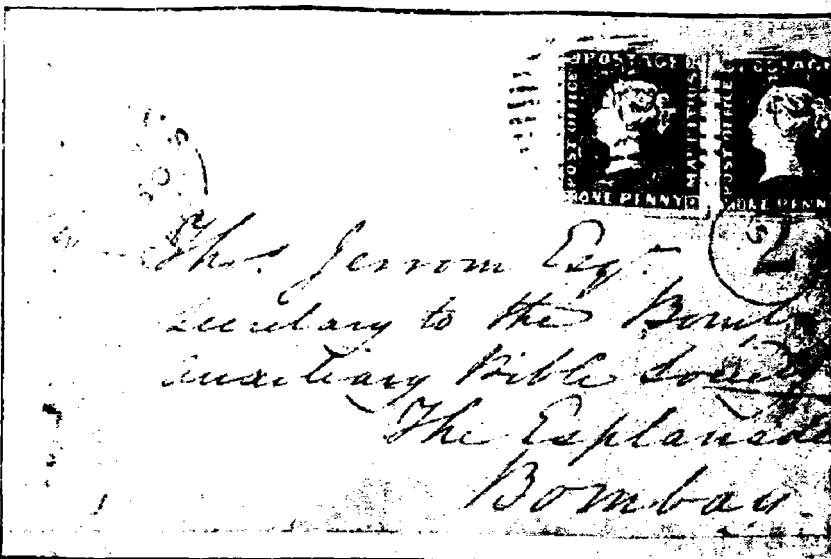 POSTAGE
POST OFFICE
MAURITIUS
ONE PENNY
POSTAG
POST OFFICE
ONE PENN
2
Thos. Jerrom Esqr.
Secretary to the Bomb
Auxiliary Bible Society
The Esplanade
Bombay.